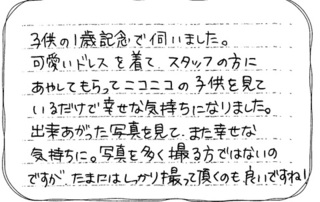 子供の1歳記念で伺いました。
可愛いドレスを着て、スタッフの方に
あやしてもらってニコニコの子供を見て
いるだけで幸せな気持ちになりました。
出来あがった写真を見て、また幸せな
気持ちに。写真を多く撮る方ではないの
ですが、たまにはしっかり撮って頂くのも良いですね!